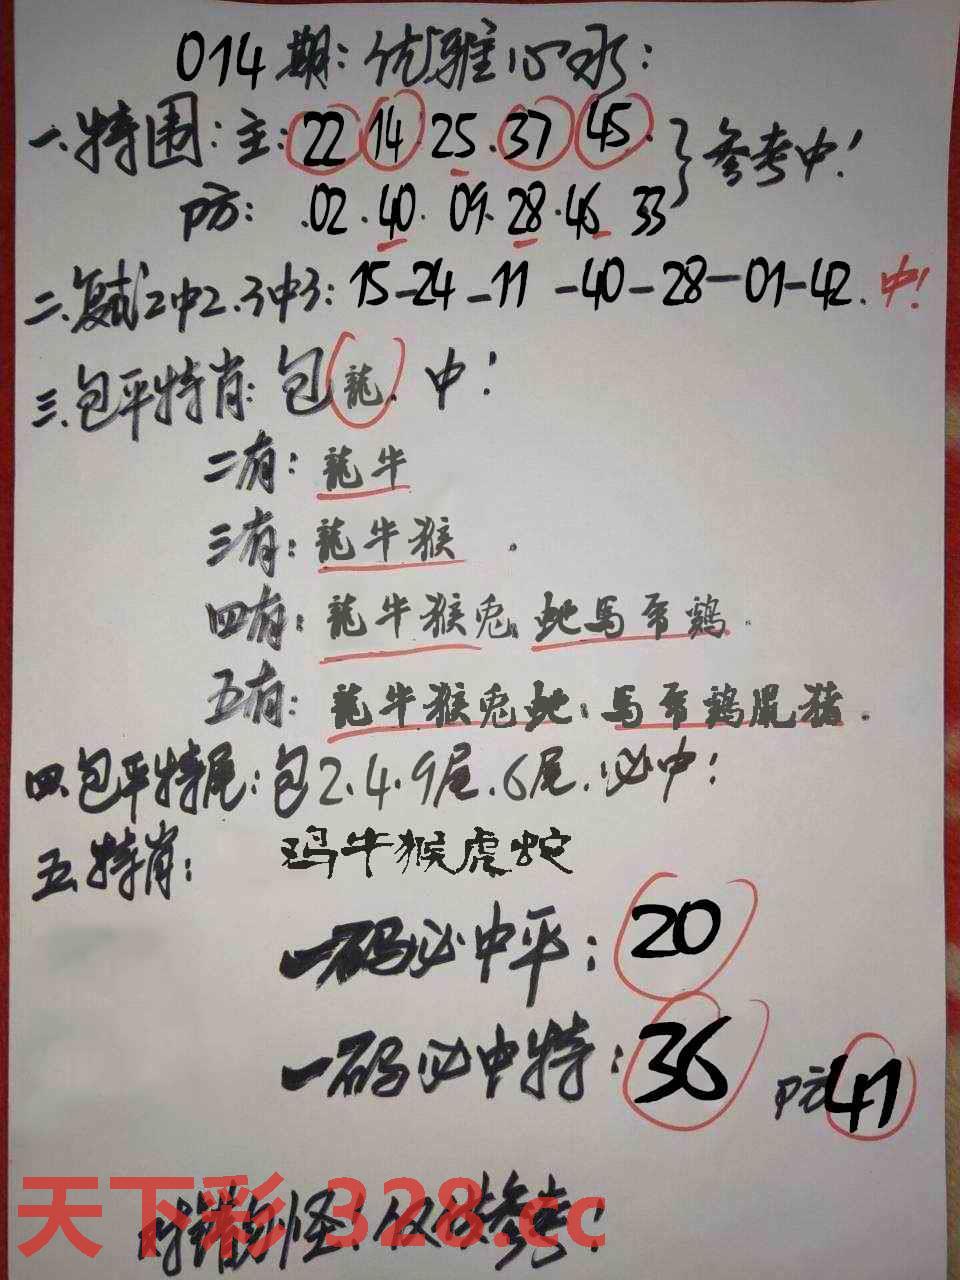 014期:优雅心水:
一.特围:主:22 14 25.37 45. 参考中!
防: .02.40. 09.28.46 33
二.复试2中2.3中3: 15-24-11-40-28-01-42.中!
三.包平特肖:包龍.中!
二有:龍牛
三有:龍牛猴.
四有:龍牛猴兎.蛇馬 鷄.
五有:龍牛猴兎蛇.馬 鷄鼠猪.
四.包平特尾:包2.4.9尾.6尾.必中!
五.特肖: 鸡牛猴虎蛇
一码必中平:20
一码必中特:36 防41
对错勿怪!仅供参考!
天下彩 328.cc